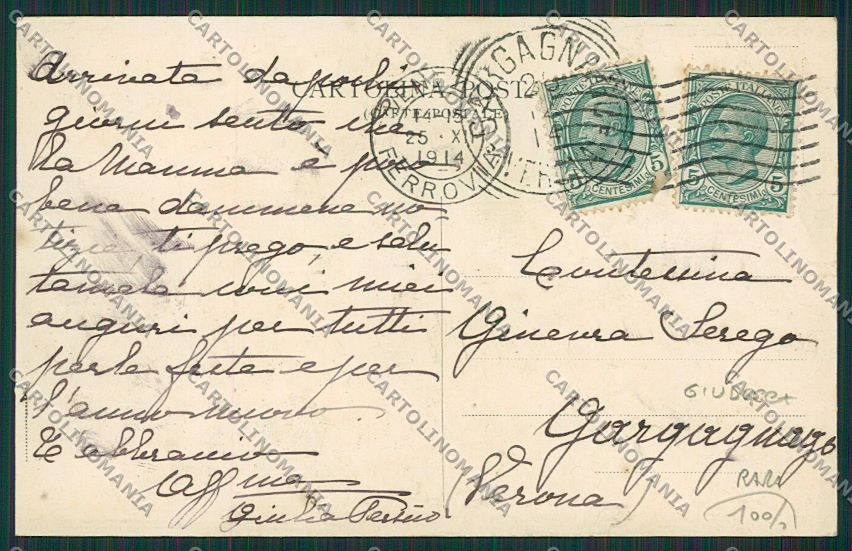 Arrivata da pochi
giorni sento che
la Mamma è più
bene dammene no
tizie, ti prego, e salu
tamela coi miei
auguri per tutti
per le feste e per
l'anno nuovo
T'abbraccio
Aff ma
Giulia
CARTOLINA POSTALE
(CARTE POSTALE
25 · XI
1914
FERROVIA
GARGAGNAGO
POSTE ITALIANE
5 CENTESIMI 5
POSTE ITALIANE
5 CENTESIMI 5
Contessina
Ginevra Serego
GIUDECCA
Gargagnago
(Verona)
RARA
100/-
CARTOLINOMANIA